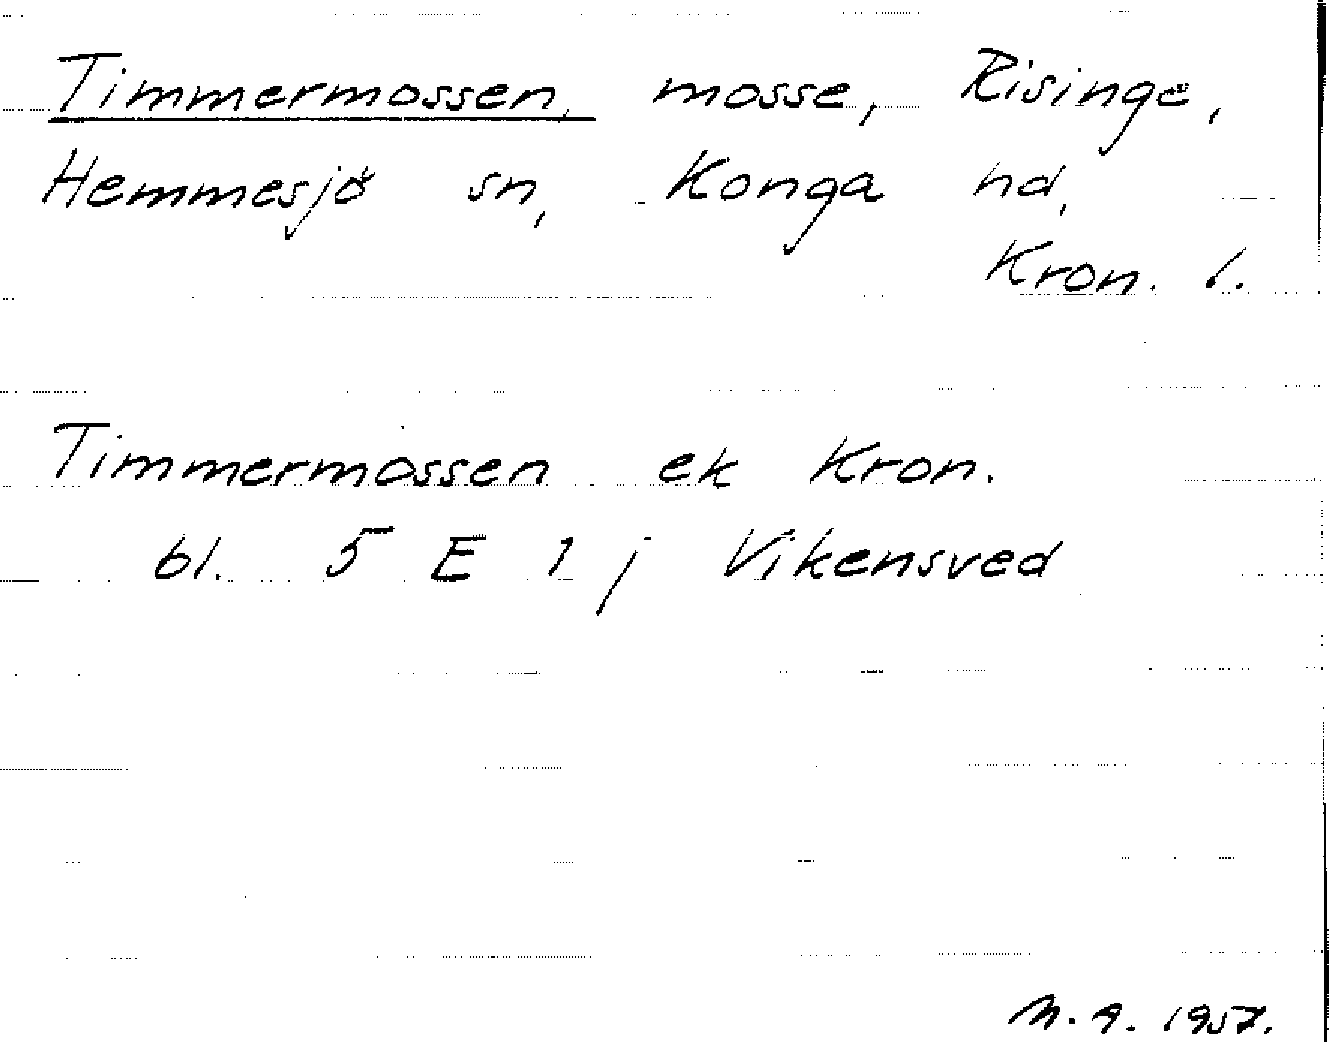 Timmermossen, mosse, Risinge,
Hemmesjö sn, Konga hd,
Kron. l.
Timmermossen ek Kron.
bl. 5 E 1 j Vikensved
M. A. 1957.